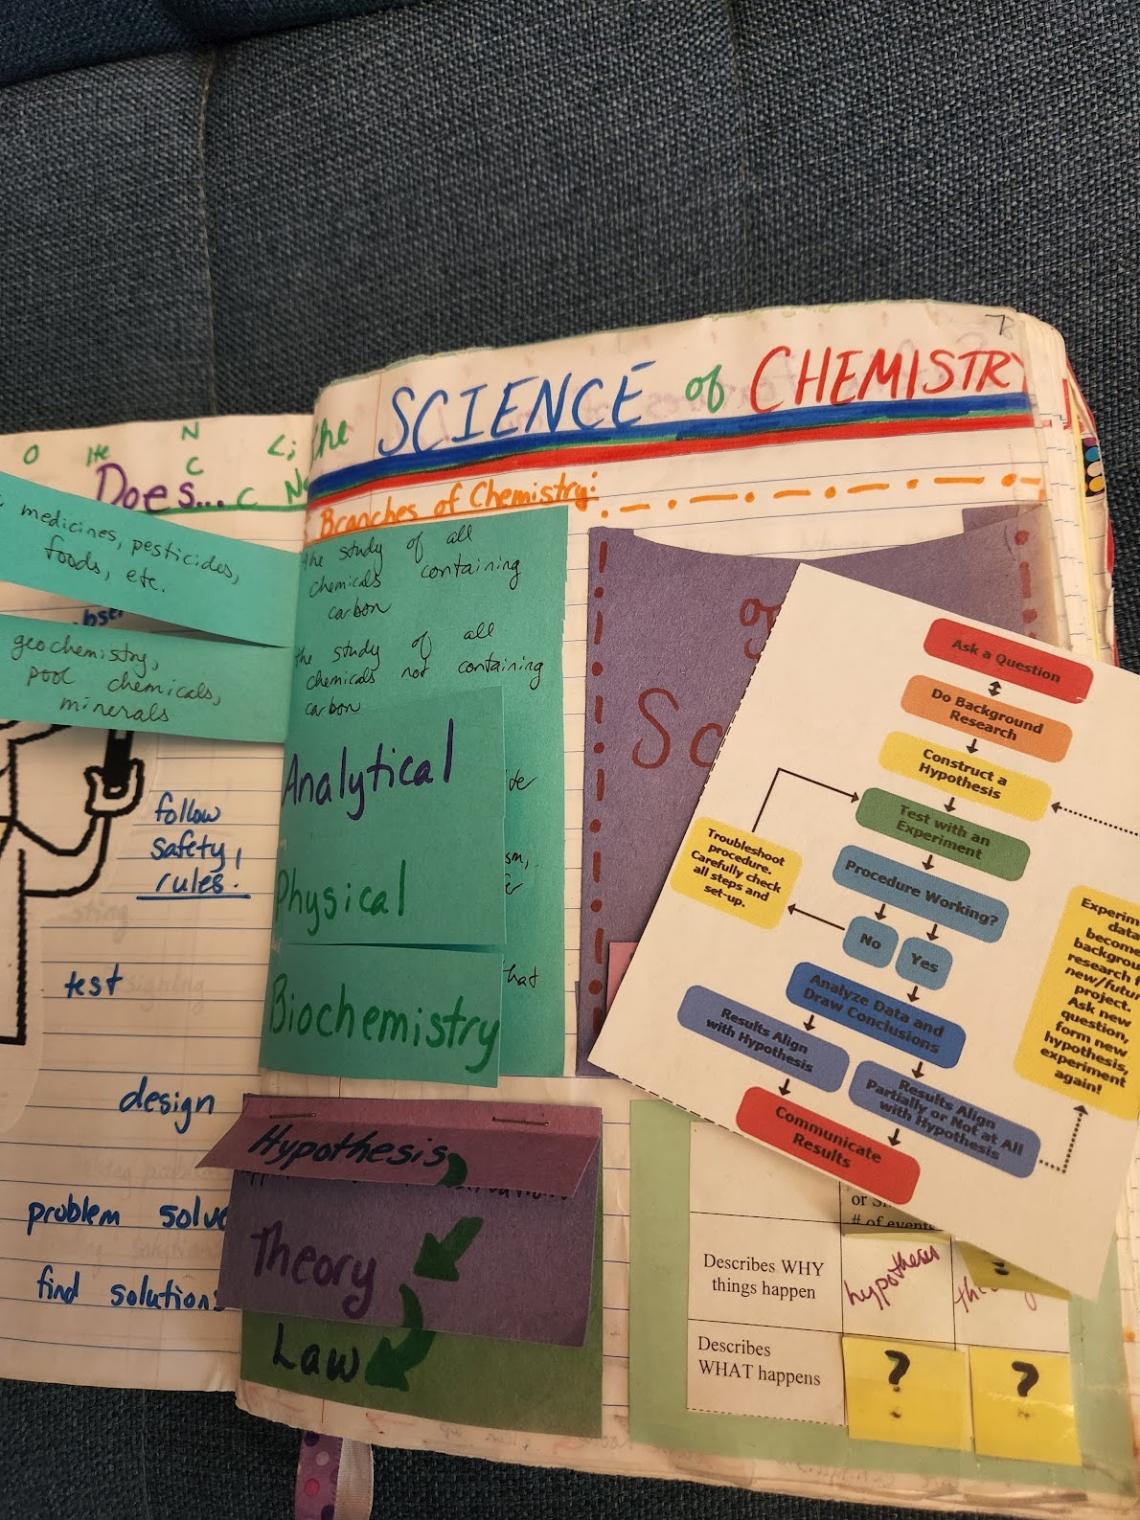 7
The SCIENCE of CHEMISTRY
Branches of Chemistry:
O He N Li
C
Does... C
medicines, pesticides,
foods, etc.
geochemistry,
pool chemicals,
minerals
follow
safety
rules.
test
design
problem solve
find solutions
the study of all
chemicals containing
carbon
the study of all
chemicals not containing
carbon
Analytical
Physical
Biochemistry
that
Hypothesis
Theory
Law
Sc
Ask a Question
Do Background
Research
Construct a
Hypothesis
Test with an
Experiment
Procedure Working?
No
Yes
Troubleshoot
procedure.
Carefully check
all steps and
set-up.
Analyze Data and
Draw Conclusions
Results Align
with Hypothesis
Results Align
Partially or Not at All
with Hypothesis
Communicate
Results
Experim
data
become
backgrou
research f
new/futur
project.
Ask new
question,
form new
hypothesis,
experiment
again!
# of events
Describes WHY
things happen
hypothesis
Describes
WHAT happens
?
?